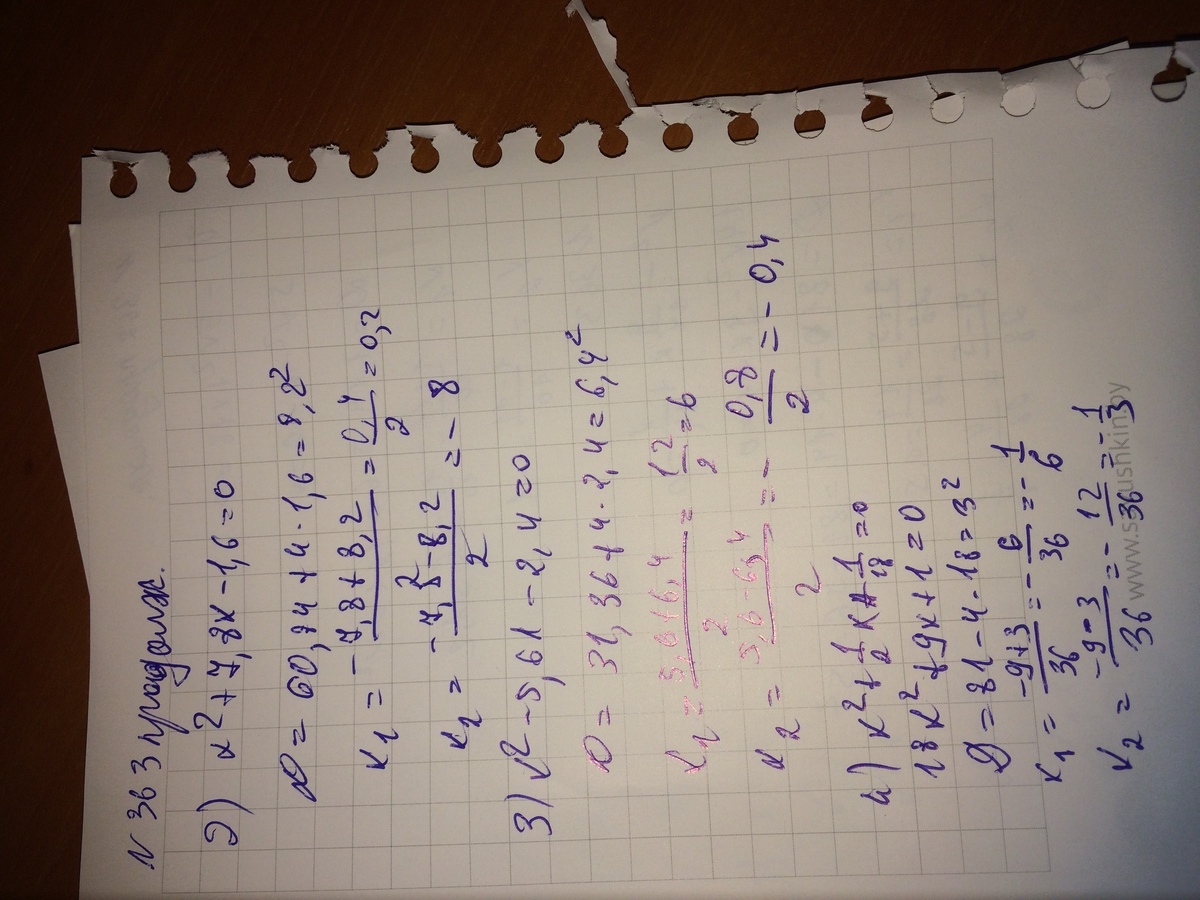 N 363 продолж.
2) x² + 7,8x - 1,6 = 0
D = 60,84 + 4 · 1,6 = 8,2²
x₁ = (-7,8 + 8,2)/2 = 0,4/2 = 0,2
x₂ = (-7,8 - 8,2)/2 = -8
3) x² - 5,6x - 2,4 = 0
D = 31,36 + 4 · 2,4 = 6,4²
x₁ = (5,6 + 6,4)/2 = 12/2 = 6
x₂ = (5,6 - 6,4)/2 = - 0,8/2 = -0,4
4) x² + 1/2 x + 1/18 = 0
18x² + 9x + 1 = 0
D = 81 - 4 · 18 = 3²
x₁ = (-9 + 3)/36 = - 6/36 = - 1/6
x₂ = (-9 - 3)/36 = - 12/36 = - 1/3